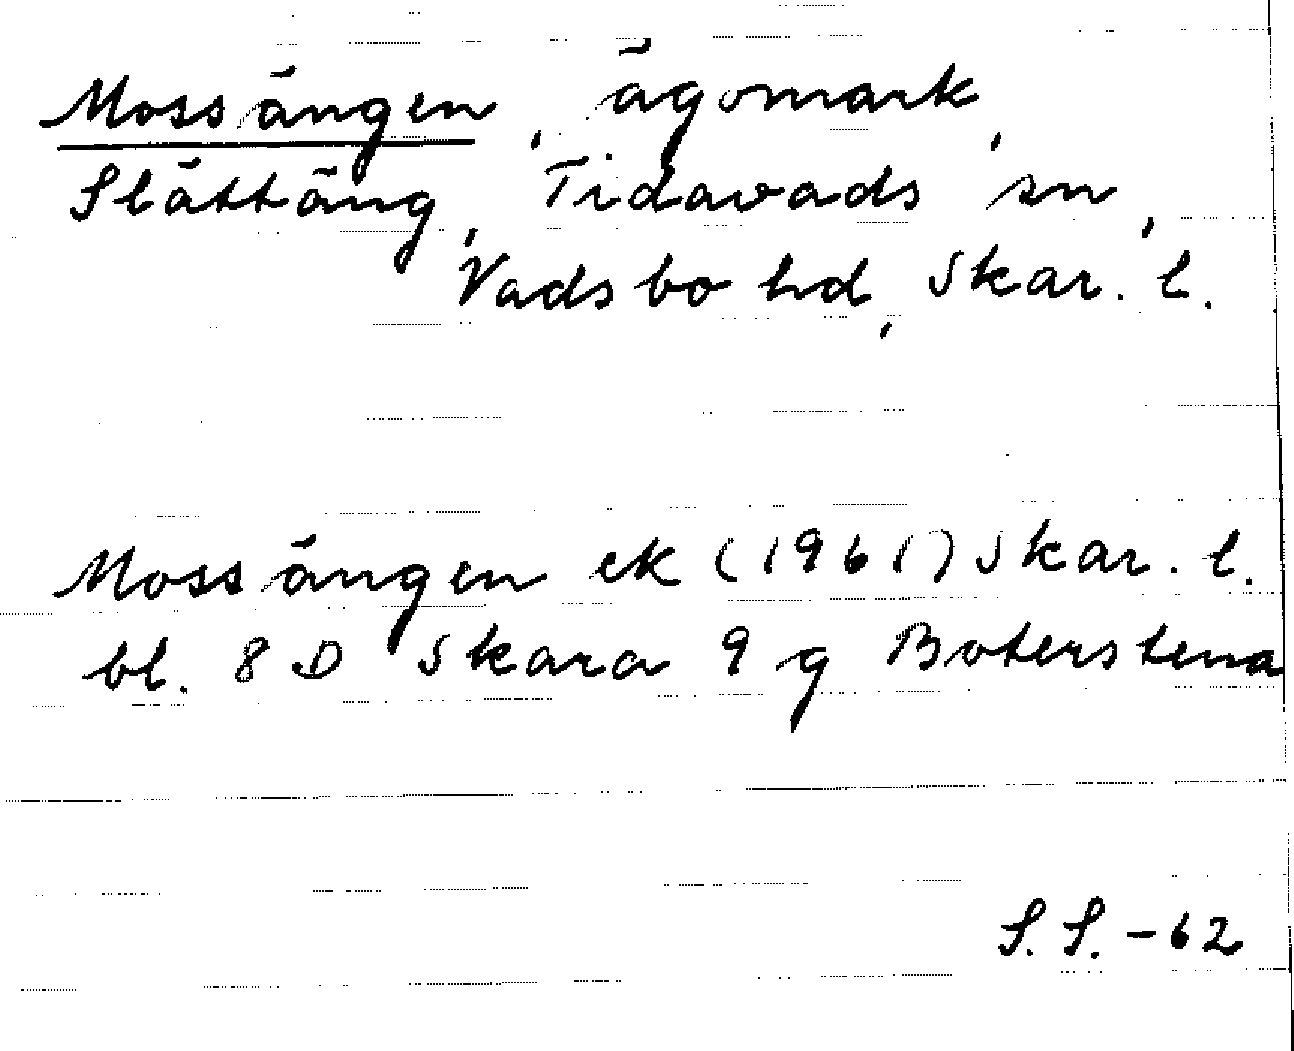 Mossängen, ägomark,
Slättäng, Tidavads sn,
Vadsbo hd, Skar. l.
Mossängen ek (1961) Skar. l.
bl. 8 D Skara 9 g Boterstena
S.S. -62